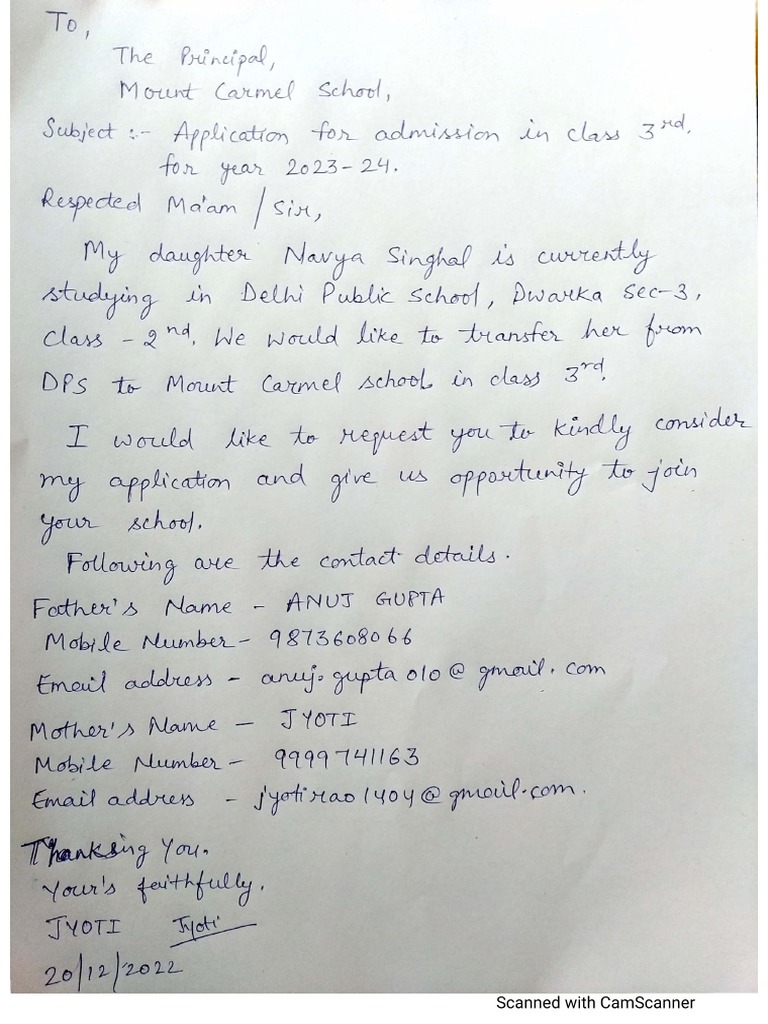 To,
The Principal,
Mount Carmel School,
Subject :- Application for admission in class 3rd.
for year 2023-24.
Respected Ma'am / Sir,
My daughter Navya Singhal is currently
studying in Delhi Public School, Dwarka Sec-3,
Class - 2nd. We would like to transfer her from
DPS to Mount Carmel school in class 3rd.
I would like to request you to kindly consider
my application and give us opportunity to join
your school.
Following are the contact details.
Father's Name - ANUJ GUPTA
Mobile Number - 9873608066
Email address - anuj.gupta010@gmail.com
Mother's Name - JYOTI
Mobile Number - 9999741163
Email address - jyotirao1404@gmail.com.
Thanksing You.
Your's faithfully.
JYOTI Jyoti
20/12/2022
Scanned with CamScanner